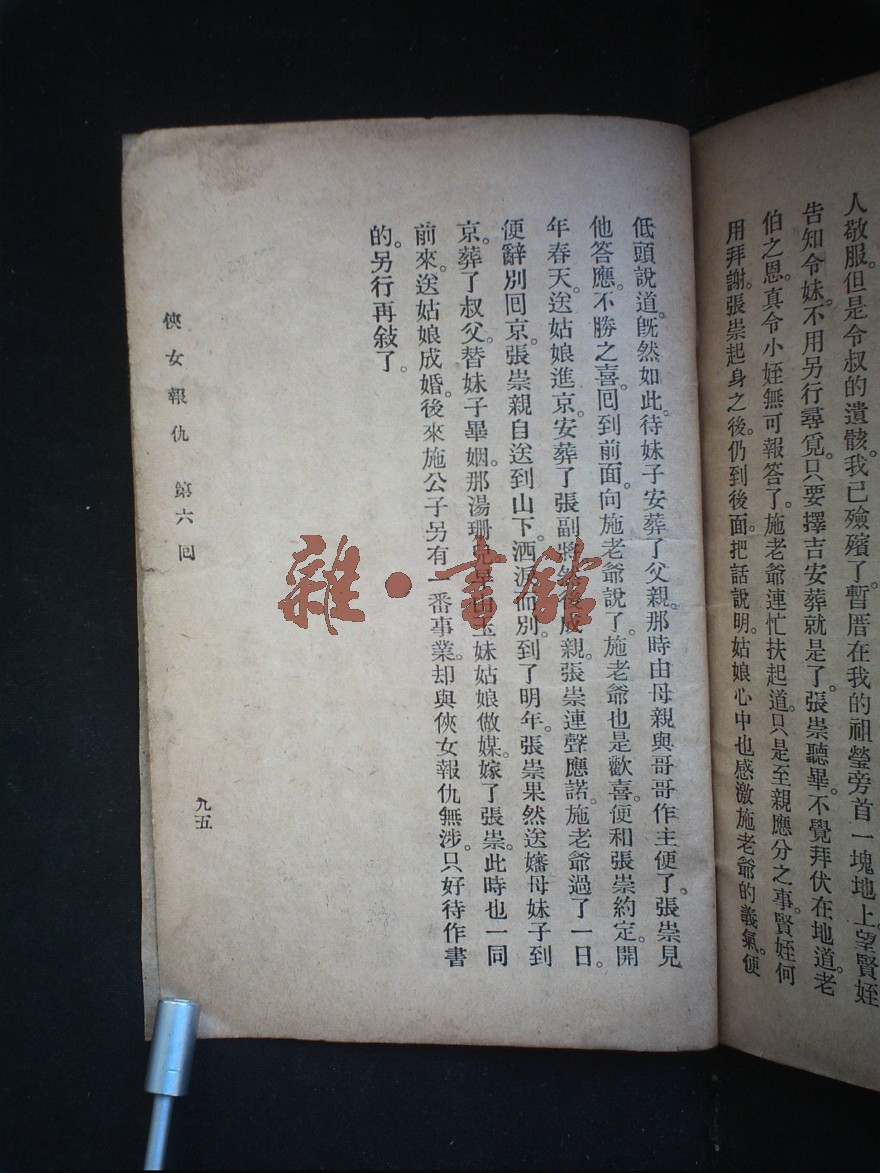 人敬服。但是令叔的遺骸。我已殮殯了。暫厝在我的祖塋旁首一塊地上。望賢姪
告知令妹。不用另行尋覓。只要擇吉安葬就是了。張崇聽畢。不覺拜伏在地道。老
伯之恩。真令小姪無可報答了。施老爺連忙扶起道。只是至親應分之事。賢姪何
用拜謝。張崇起身之後。仍到後面。把話說明。姑娘心中也感激施老爺的義氣。便
低頭說道。旣然如此。待妹子安葬了父親。那時由母親與哥哥作主便了。張崇見
他答應。不勝之喜。回到前面。向施老爺說了。施老爺也是歡喜。便和張崇約定。開
年春天。送姑娘進京。安葬了張副將。然後成親。張崇連聲應諾。施老爺過了一日。
便辭別回京。張崇親自送到山下。洒淚而別。到了明年。張崇果然送嬸母妹子到
京。葬了叔父。替妹子畢姻。那湯珊兒早由玉妹姑娘做媒。嫁了張崇。此時也一同
前來。送姑娘成婚。後來施公子另有一番事業。却與俠女報仇無涉。只好待作書
的。另行再敍了。
俠女報仇 第六回
九五
雜·書館